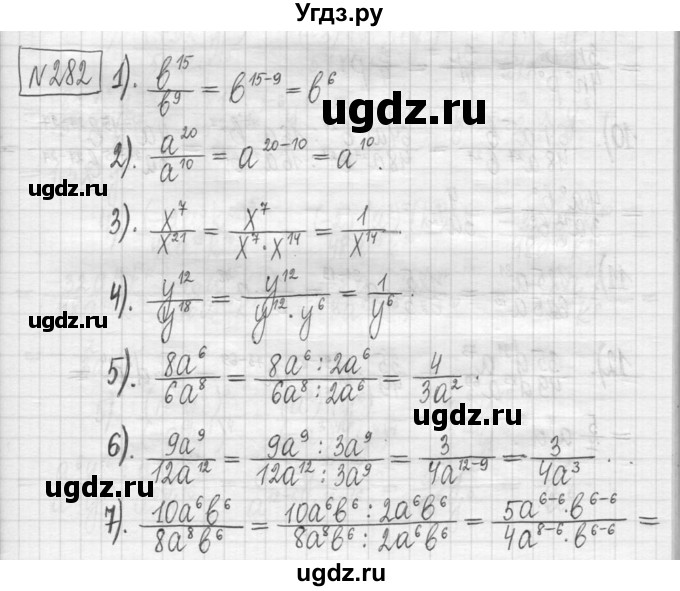 Угдз.ру
№282 1). b^15/b^9 = b^(15-9) = b^6
ugdz.ru
2). a^20/a^10 = a^(20-10) = a^10.
ugdz.ru
3). x^7/x^21 = x^7/(x^7·x^14) = 1/x^14.
4). y^12/y^18 = y^12/(y^12·y^6) = 1/y^6.
ugdz.ru
5). 8a^6/6a^8 = (8a^6 : 2a^6)/(6a^8 : 2a^6) = 4/3a^2.
ugdz.ru
6). 9a^9/12a^12 = (9a^9 : 3a^9)/(12a^12 : 3a^9) = 3/4a^(12-9) = 3/4a^3.
ugdz.ru
ugdz.ru
7). 10a^6b^6/8a^8b^6 = (10a^6b^6 : 2a^6b^6)/(8a^8b^6 : 2a^6b^6) = (5a^(6-6)·b^(6-6))/(4a^(8-6)·b^(6-6)) =
ugdz.ru